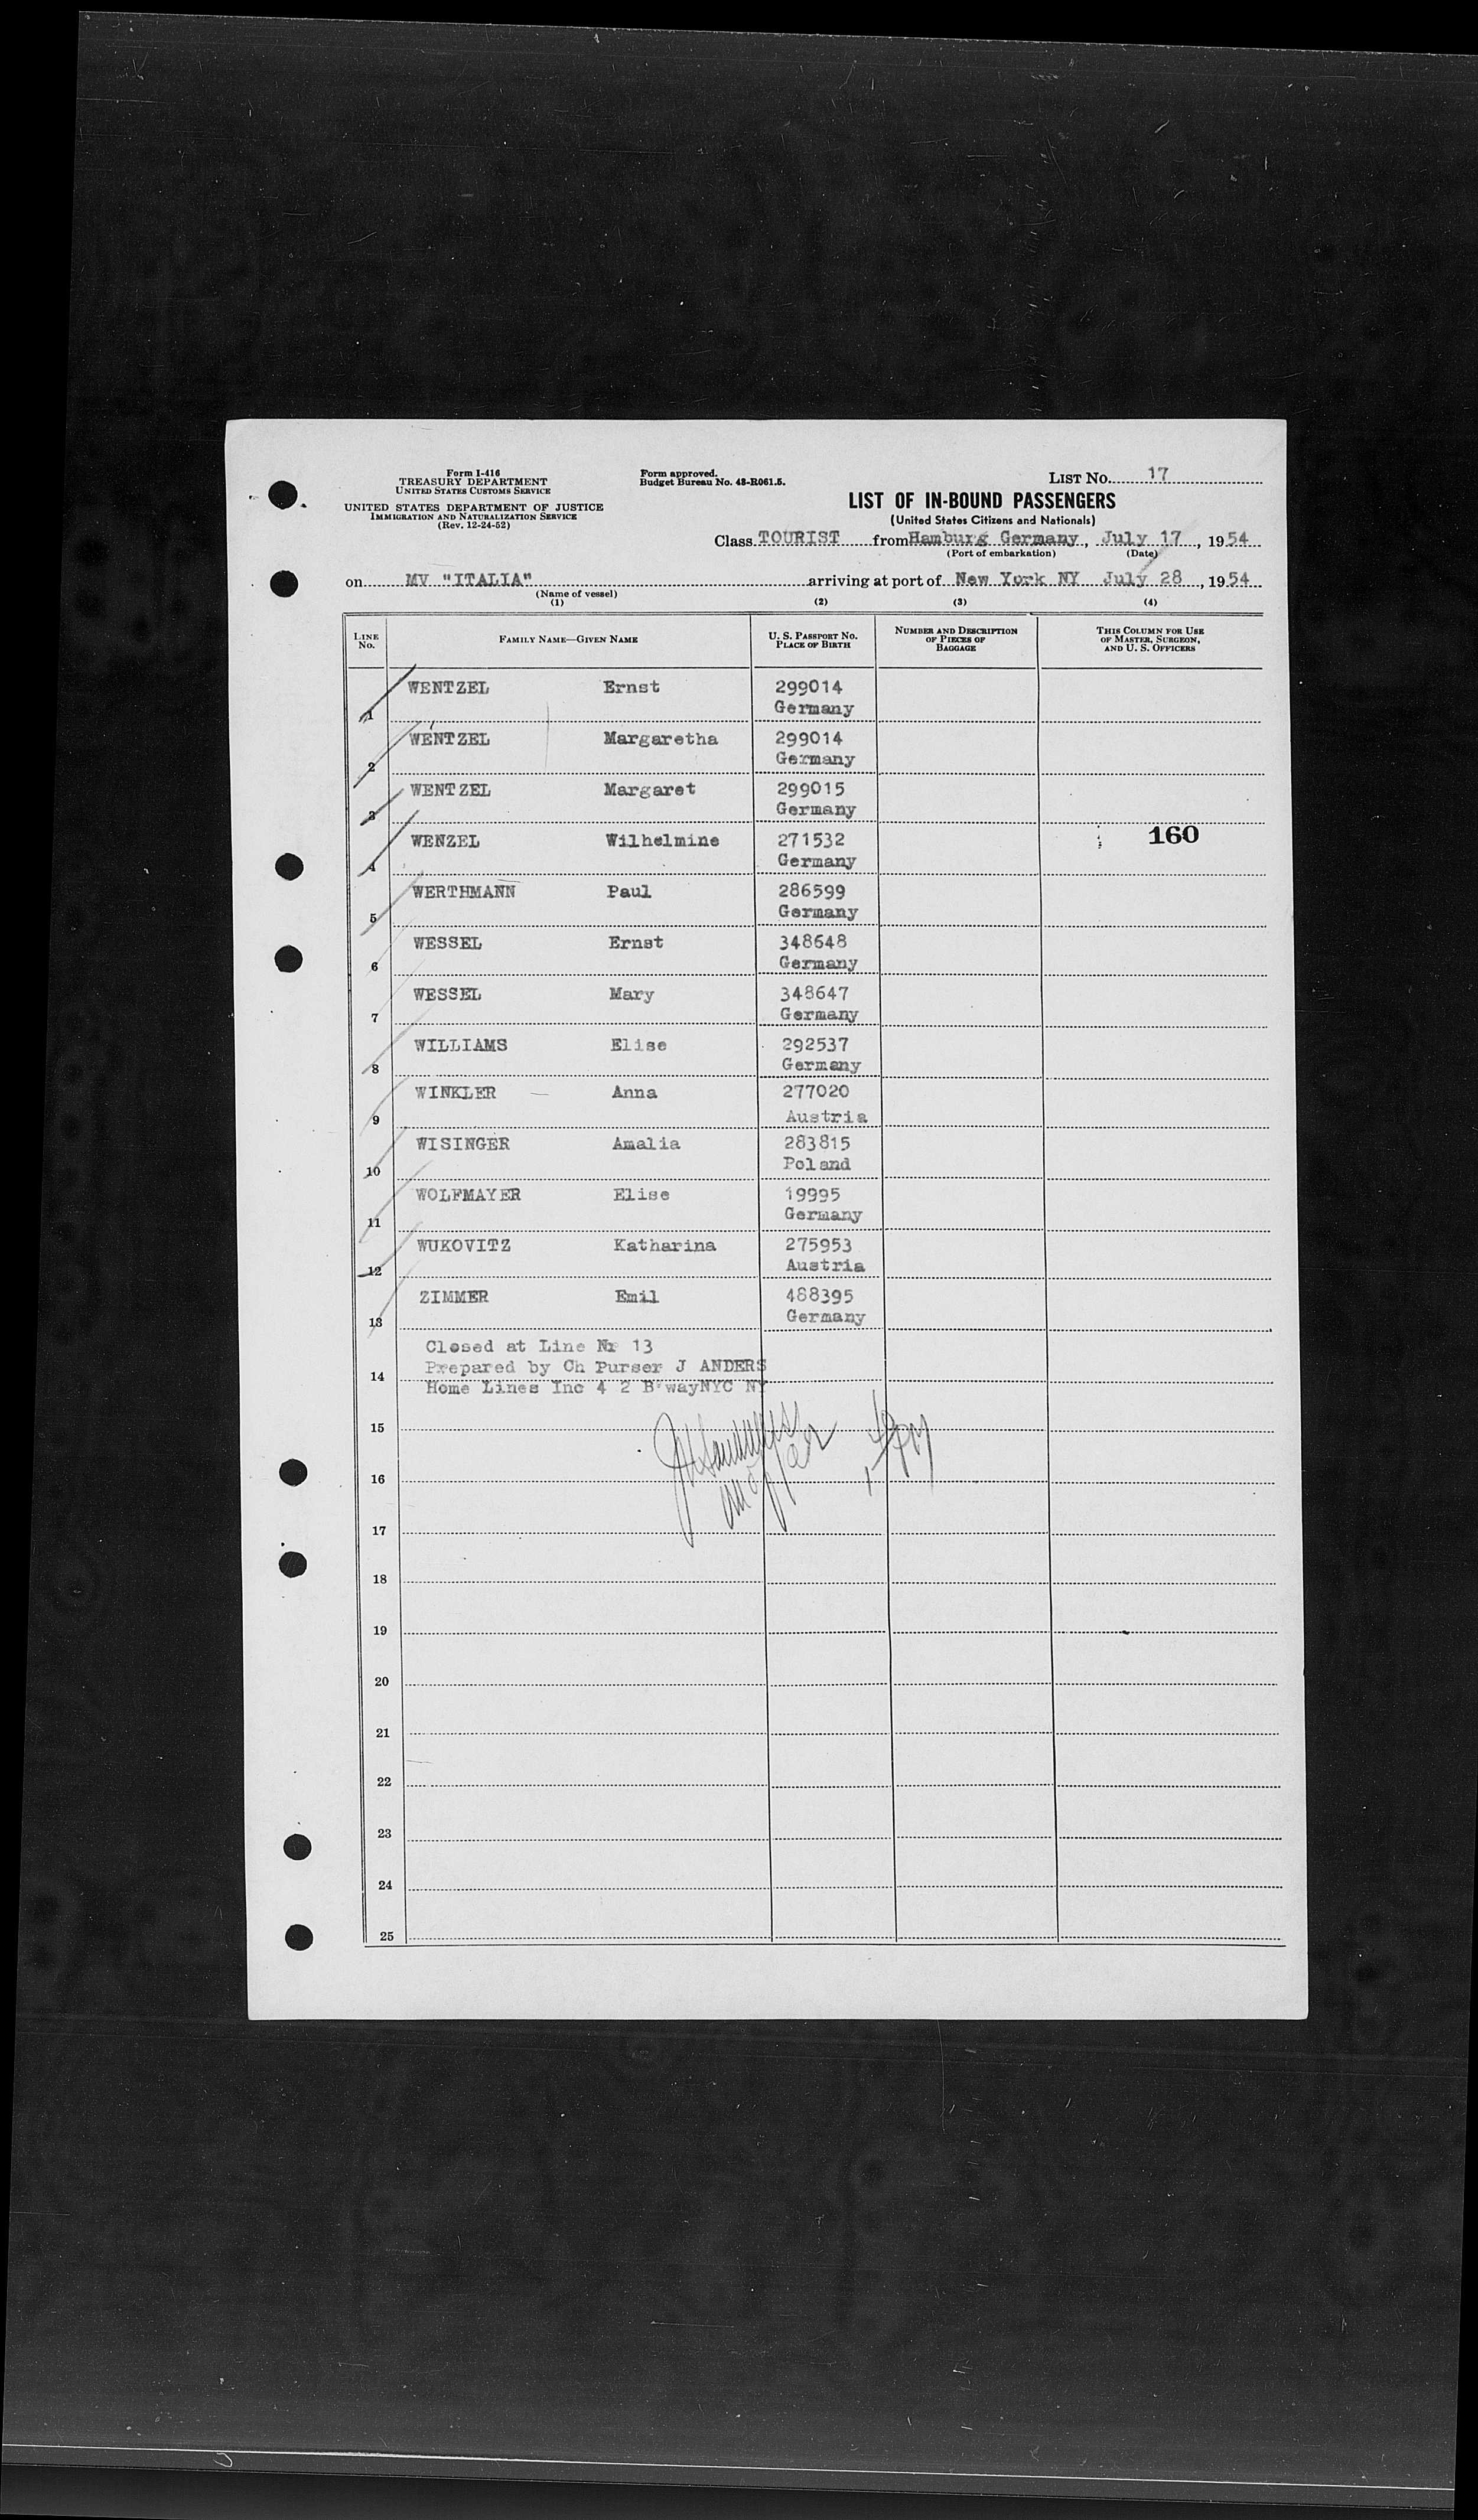 Form I-416
TREASURY DEPARTMENT
UNITED STATES CUSTOMS SERVICE
UNITED STATES DEPARTMENT OF JUSTICE
IMMIGRATION AND NATURALIZATION SERVICE
(Rev. 12-24-52)
Form approved.
Budget Bureau No. 43-R061.5.
LIST NO. 17
LIST OF IN-BOUND PASSENGERS
(United States Citizens and Nationals)
Class TOURIST from Hamburg Germany, July 17, 1954
(Port of embarkation) (Date)
on MV "ITALIA" arriving at port of New York NY July 28, 1954
(Name of vessel)
(1) (2) (3) (4)
LINE NO. FAMILY NAME—GIVEN NAME U. S. PASSPORT NO. PLACE OF BIRTH NUMBER AND DESCRIPTION OF PIECES OF BAGGAGE THIS COLUMN FOR USE OF MASTER, SURGEON, AND U. S. OFFICERS
WENTZEL Ernst 299014
1 Germany
WENTZEL Margaretha 299014
2 Germany
WENTZEL Margaret 299015
3 Germany
WENZEL Wilhelmine 271532 160
4 Germany
WERTHMANN Paul 286599
5 Germany
WESSEL Ernst 348648
6 Germany
WESSEL Mary 348647
7 Germany
WILLIAMS Elise 292537
8 Germany
WINKLER Anna 277020
9 Austria
WISINGER Amalia 283815
10 Poland
WOLFMAYER Elise 19995
11 Germany
WUKOVITZ Katharina 275953
12 Austria
ZIMMER Emil 488395
13 Germany
Closed at Line Nr 13
Prepared by Ch Purser J ANDERS
14
Home Lines Inc 4 2 B'wayNYC NY
15
16
17
18
19
20
21
22
23
24
25